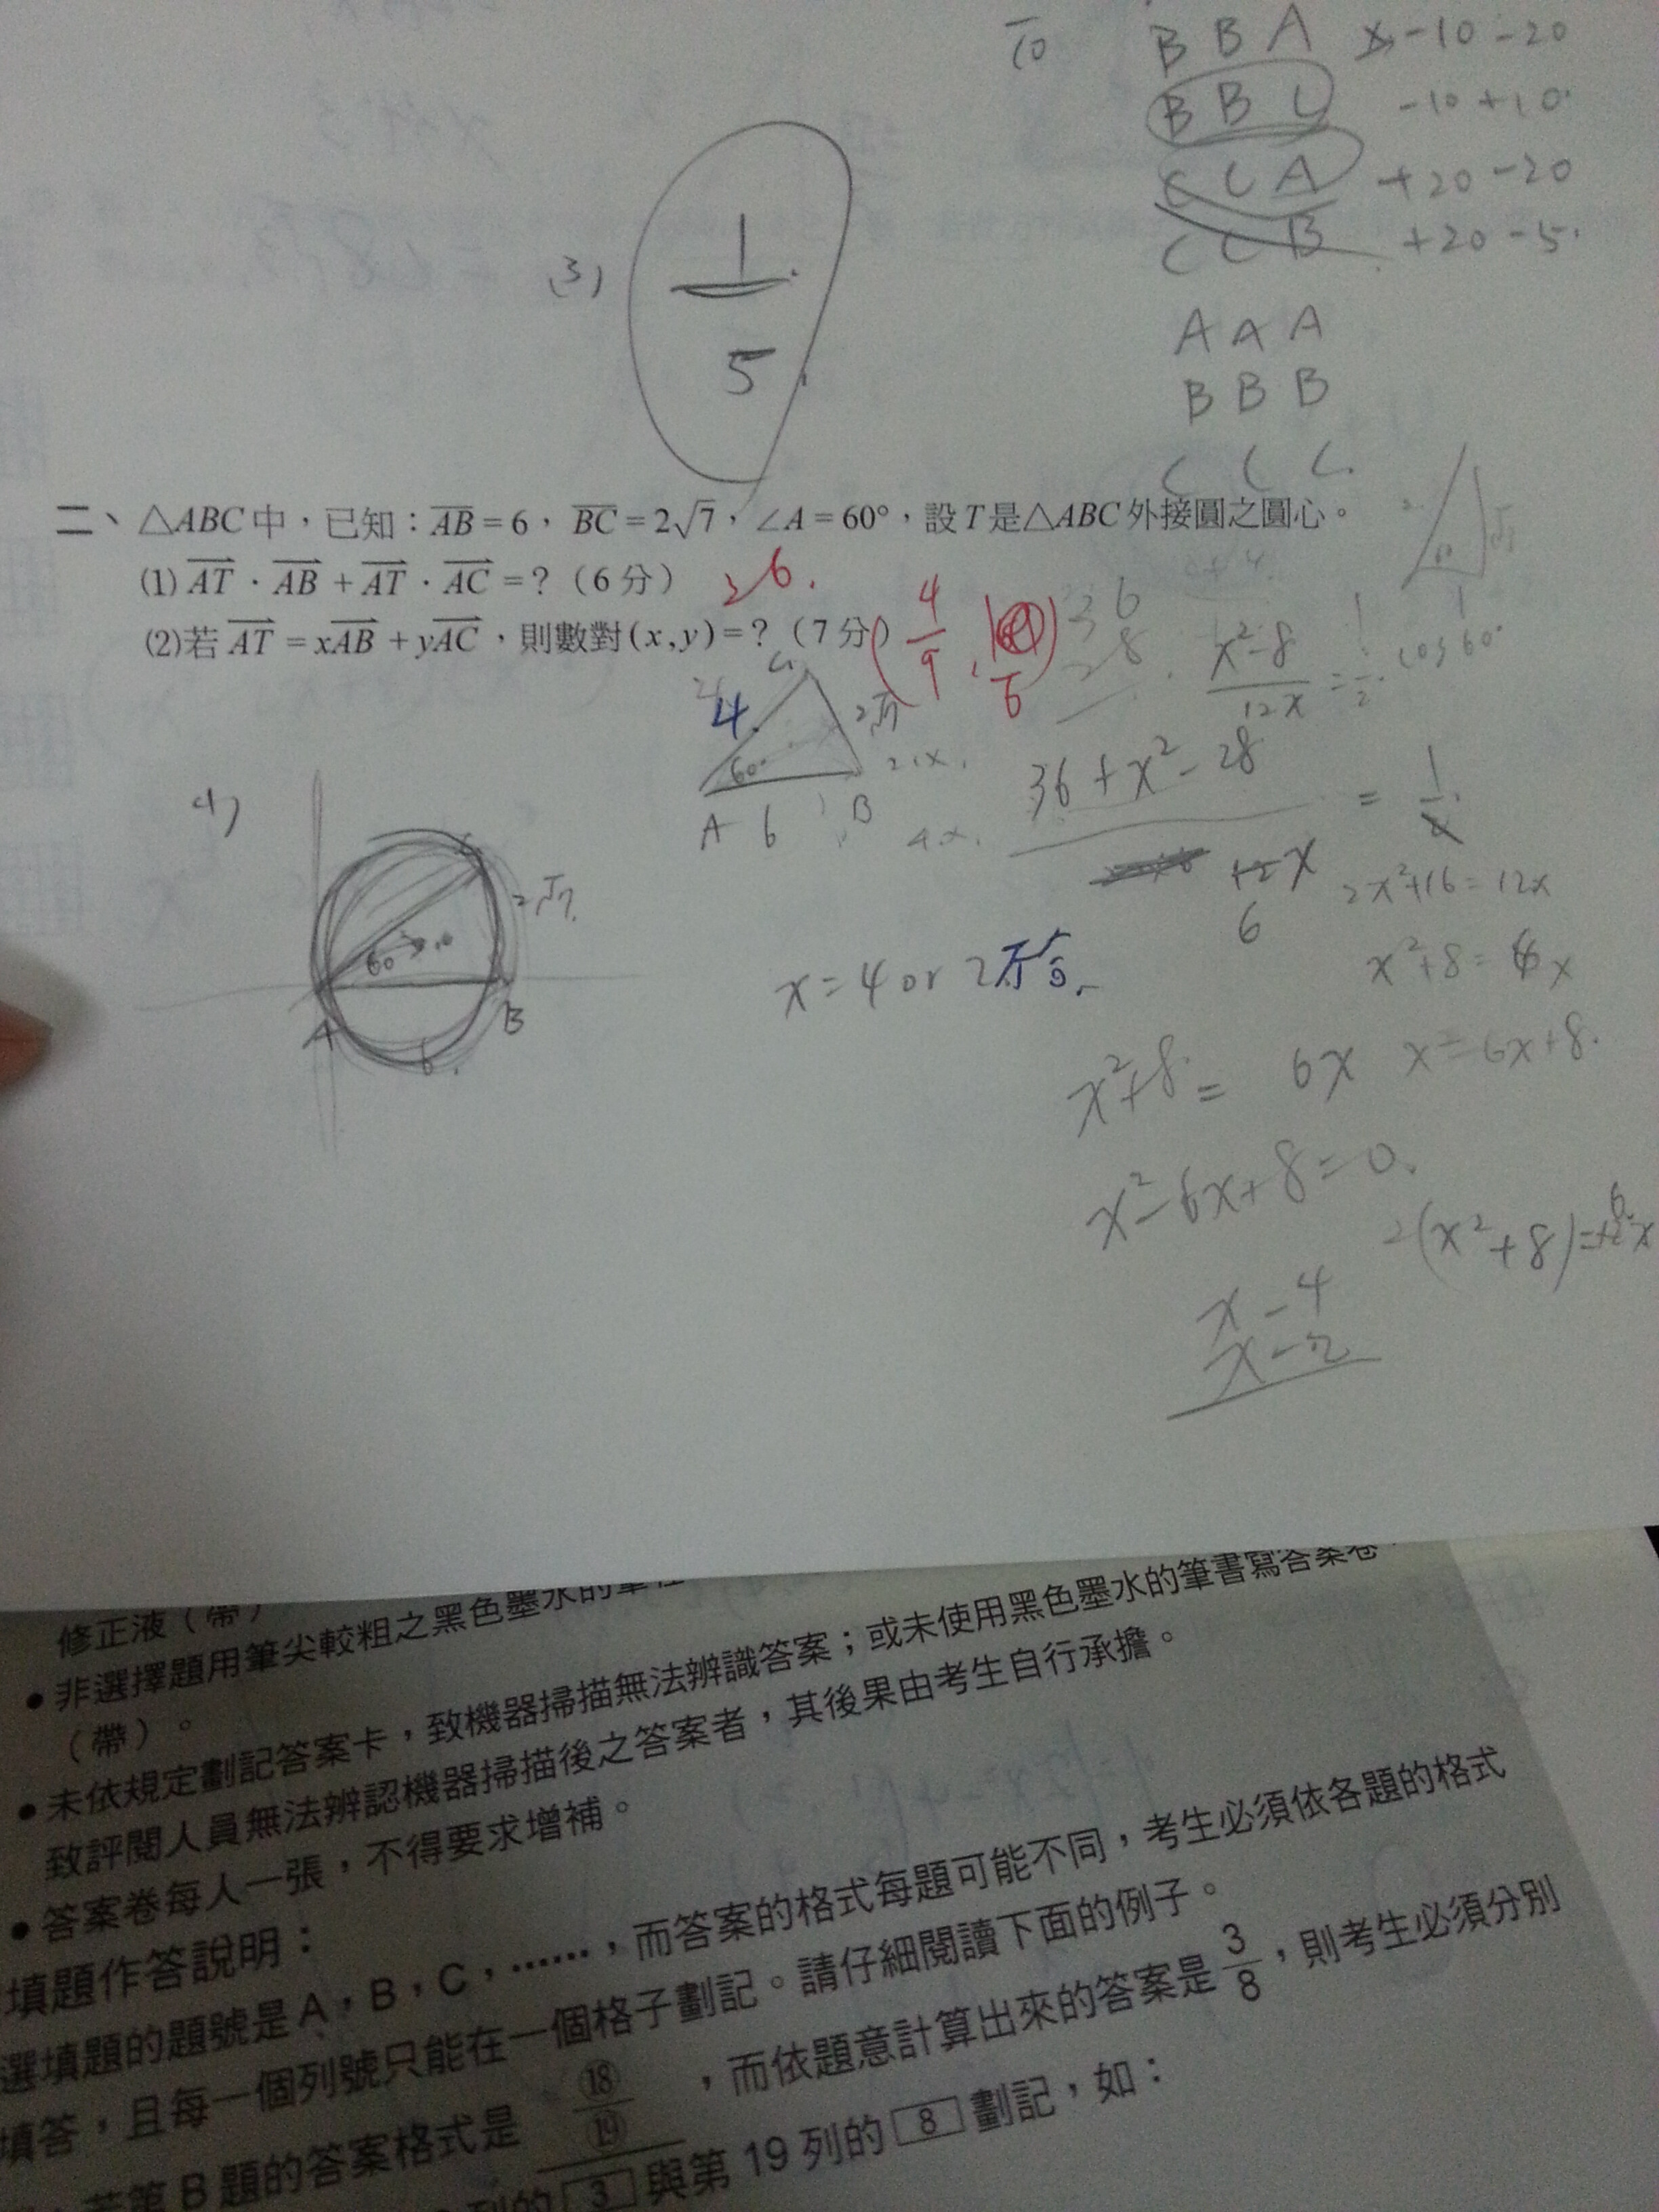 10
B B A -10 -20
B B C -10 +10
C C A +20 -20
C C B +20 -5
A A A
B B B
C C C.
(3) 1/5
二、△ABC中，已知：AB=6，BC=2√7，∠A=60°，設T是△ABC外接圓之圓心。
(1) AT · AB + AT · AC =？（6分） 26.
(2)若 AT = xAB + yAC，則數對(x,y)=？（7分） (4/9, 1/6)
36
28
x²-8/12x = 1/2 cos60°
4 2√7
60°
A 6 B
36+x²-28 / 6x = 1/2
2x²+16=12x
x²+8=6x
x=4 or 2不合.
C 2√7.
60
A B
6.
x²+8= 6x x=6x+8.
x²-6x+8=0.
2(x²+8)=12x
x-4
x-2
修正液（帶）
●非選擇題用筆尖較粗之黑色墨水的筆
（帶）。
●未依規定劃記答案卡，致機器掃描無法辨識答案；或未使用黑色墨水的筆書寫答案卷，
致評閱人員無法辨認機器掃描後之答案者，其後果由考生自行承擔。
●答案卷每人一張，不得要求增補。
填題作答說明：
選填題的題號是A，B，C，……，而答案的格式每題可能不同，考生必須依各題的格式
填答，且每一個列號只能在一個格子劃記。請仔細閱讀下面的例子。
若第B題的答案格式是 ⑱/⑲，而依題意計算出來的答案是 3/8，則考生必須分別
列的 3 與第 19 列的 8 劃記，如：